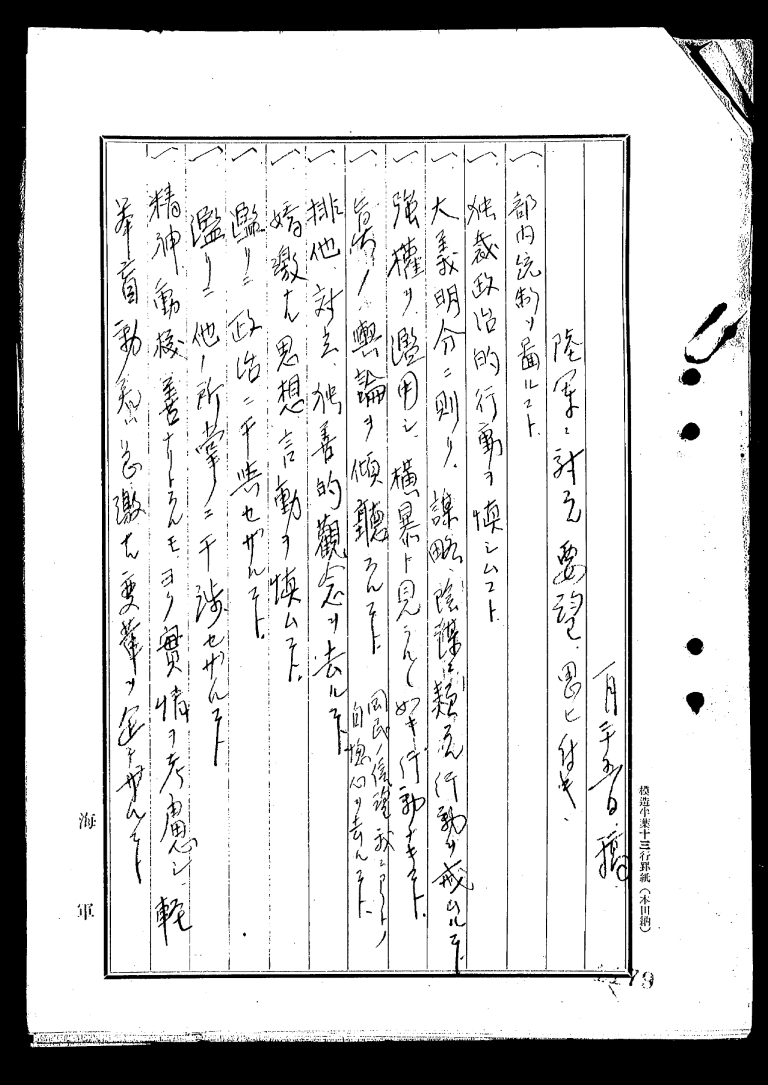 一月二十五日 稿
陸軍ニ対スル要望 思ヒ付キ、
一、部内統制ヲ図ルコト、
一、独裁政治的行動ヲ慎シムコト
一、大義明分ニ則リ、謀略、陰謀ニ類スル行動ヲ戒ムルコト
一、強権ヲ濫用シ、横暴ト見ラルヽ如キ行動ナキコト、
一、輿論ヲ傾聴スルコト
国民ノ信望我ニアリトノ
自惚心ヲ去ルコト、
一、排他、対立、独善的観念ヲ去ルコト
一、矯激ナル思想、言動ヲ慎ムコト、
一、濫リニ政治ニ干与セザルコト、
一、濫リニ他ノ所掌ニ干渉セザルコト
一、精神動機善ナリトスルモヨク實情ヲ考慮シ、軽
挙盲動急激ナル変革ヲ企テザルコト
海軍
模造半葉十三行罫紙(本田納)